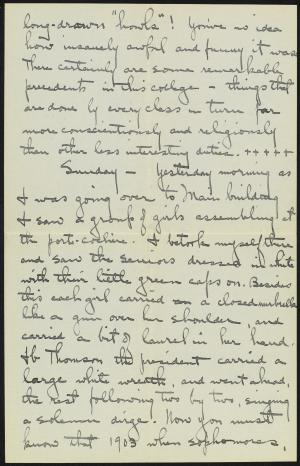 long-drawn "howls"! You've no idea
how insanely awful and funny it was.
There certainly are some remarkable
precedents in this college - things that
are done by every class in turn far
more conscientiously and religiously
than other less interesting duties. +++++
Sunday - Yesterday morning as
I was going over to Main building
I saw a group of girls assembling at
the porte-cochère. I betook myself there
and saw the seniors dressed in white
with their little green caps on. Besides
this each girl carried a closed umbrella
like a gun over her shoulder, and
carried a bit of laurel in her hand.
Thomson the president carried a
large white wreath, and went ahead,
the rest following two by two, singing
a solemn dirge. Now you must
know that 1903 when sophomores,